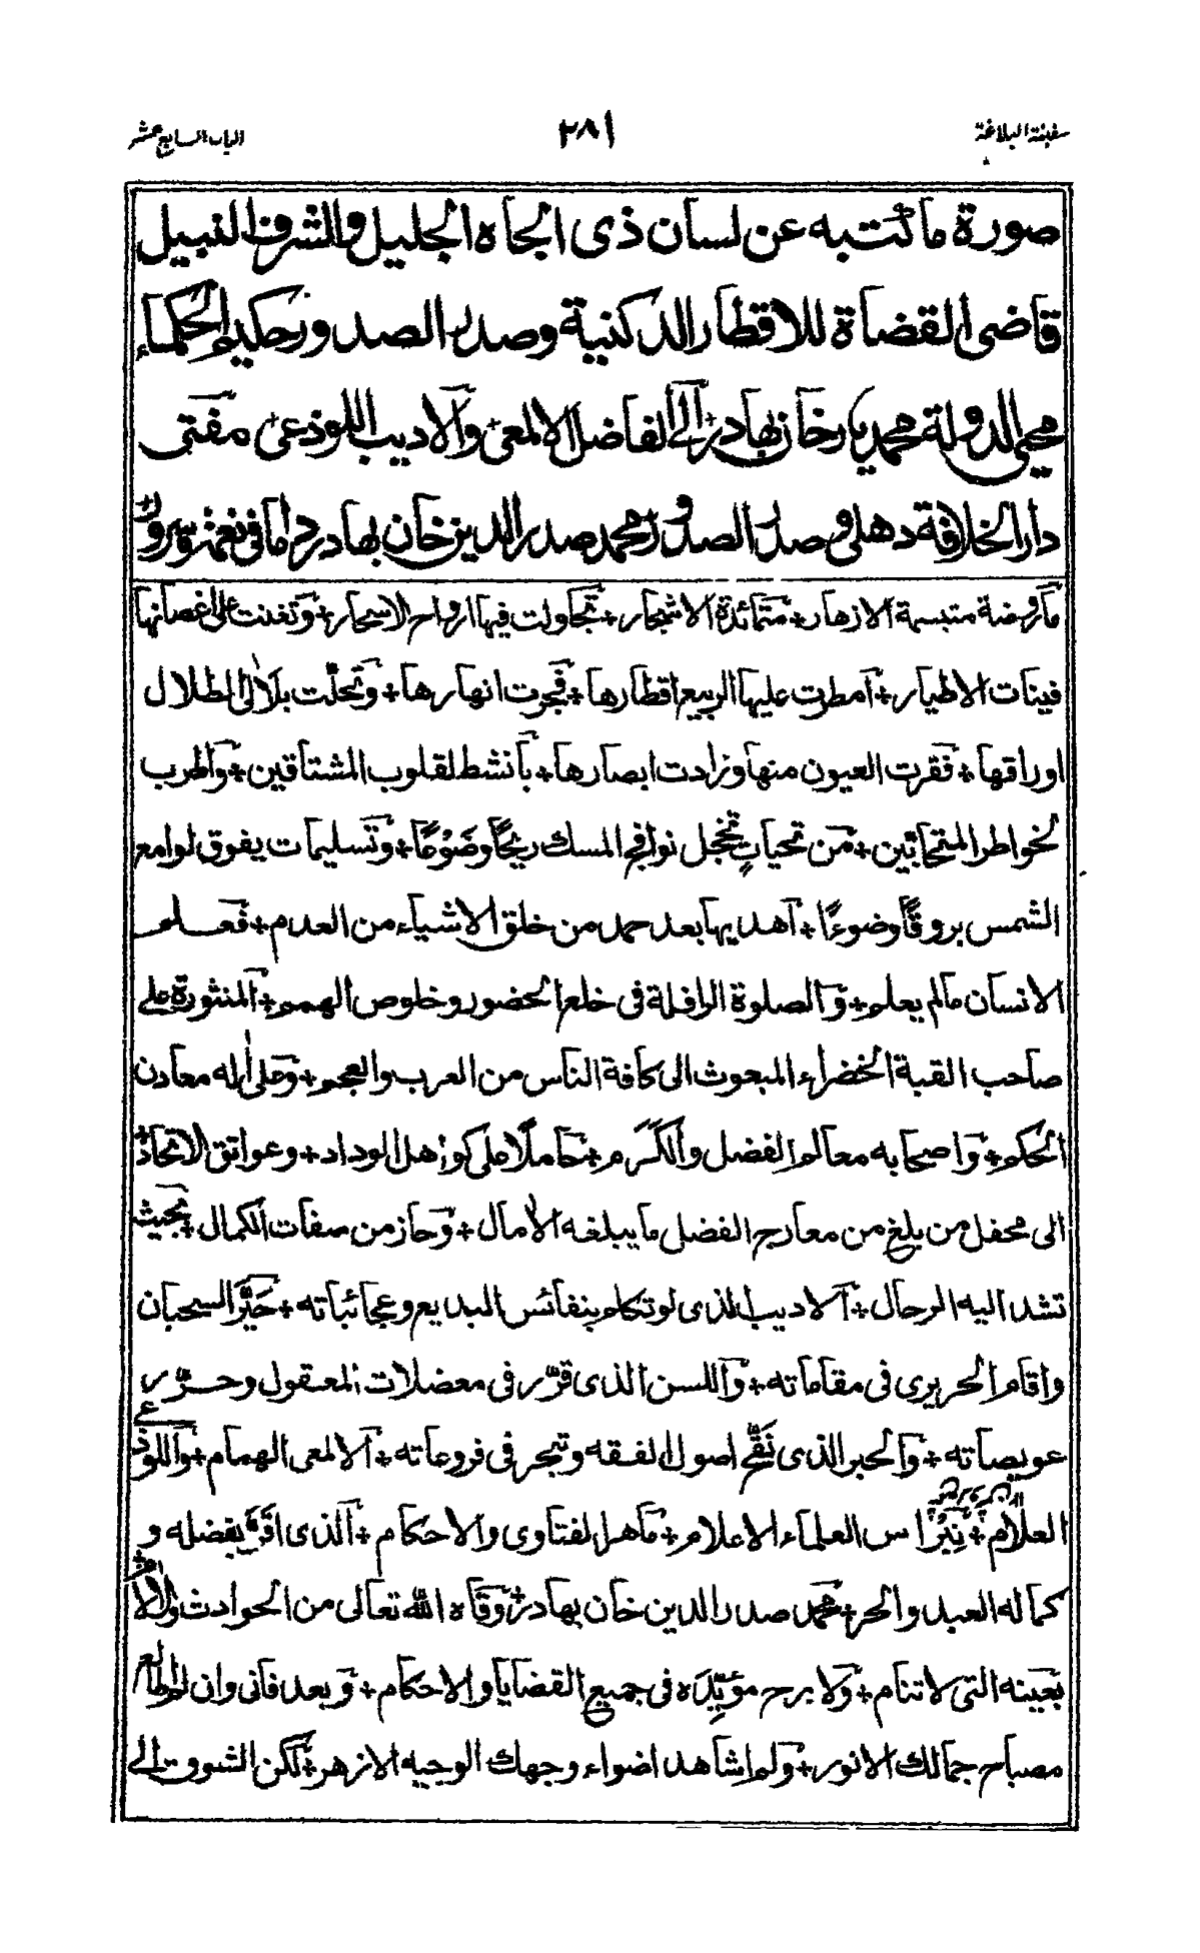 سفينة البلاغة
٢٨١
الباب السابع عشر
صورة ما كتبه عن لسان ذى الجاه الجليل والشرف النبيل
قاضى القضاة للاقطار الدكنية وصدر الصدور حكيم الحكماء
محيى الدولة محمد يار خان بهادر الى الفاضل الالمعى والاديب اللوذعى مفتى
دار الخلافة دهلى وصدر الصدور محمد صدر الدين خان بهادر دام فى نعم وسرور
ما روضة متبسمة الازهار + متمائدة الاشجار + تجاولت فيها ارواح الاسحار + وتغنت على اغصانها
قينات الاطيار + امطرت عليها الربيع اقطارها + فجرت انهارها + وتحلّت بلآلى الطلال
اوراقها + فقرت العيون منها وزادت ابصارها + بانشط لقلوب المشتاقين + واطرب
لخواطر المتحابّين + من تحياتٍ تخجل نوافج المسك ريحًا وضَوْعًا + وتسليمات يفوق لوامع
الشمس بروقًا وضوءًا + اهديها بعد حمد من خلق الاشياء من العدم + فعلم
الانسان مالم يعلم + والصلوة الرافلة فى خلع الحضور وخلوص الهمم + المنثورة على
صاحب القبة الخضراء المبعوث الى كافة الناس من العرب والعجم + وعلى أله معادن
الحكم + واصحابه معالم الفضل والكرم + حاملًا على كواهل الوداد + وعواتق الاتحاد
الى محفل من بلغ من معارج الفضل ما يبلغه الأمال + وحاز من صفات الكمال + بحيث
تشد اليه الرحال + الاديب الذى لو تكلم بنفائس البديع وعجائباته + حيّر السحبان
واقام الحريرى فى مقاماته + واللسن الذى قرّر فى معضلات المعقول وحرّر
عويصاته + والحبر الذى نقّح اصول الفقه وتبحر فى فروعاته + الالمعى الهمام + واللوذعى
العلام + نِبْرَاس العلماء الاعلام + ماهر الفتاوى والاحكام + الذى اقرّ بفضله و
كماله العبد والحر + محمد صدر الدين خان بهادر + وقاه الله تعالى من الحوادث والألام
بعينه التى لا تنام + ولا برح مؤيِّدَه فى جميع القضايا والاحكام + وبعد فانى وان لم اطالع
مصباح جمالك الانور + ولم اشاهد اضواء وجهك الوجيه الازهر + لكن الشوق الى